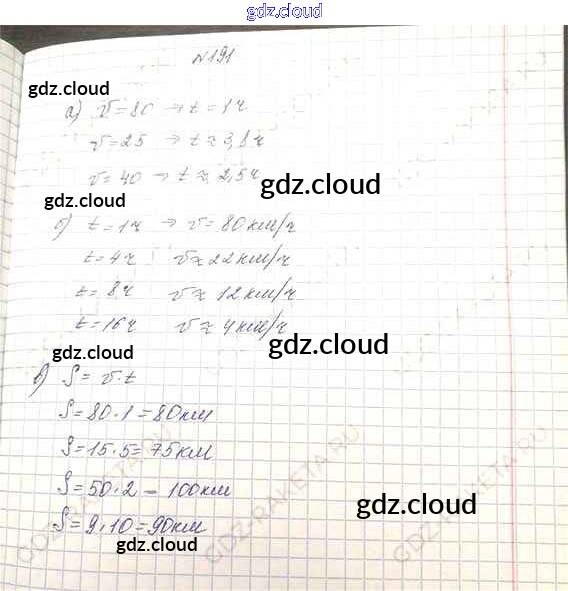 gdz.cloud
N191
gdz.cloud
а) v=80 → t=1ч
v=25 → t≈3,8ч
v=40 → t≈2,5ч
gdz.cloud
gdz.cloud
б) t=1ч → v=80км/ч
t=4ч v≈22км/ч
t=8ч v≈12км/ч
t=16ч v≈4км/ч
gdz.cloud
gdz.cloud
в) S=v·t
S=80·1=80км
S=15·5=75км
S=50·2=100км
gdz.cloud
S=9·10=90км
gdz.cloud
GDZ-RAKETA.RU
GDZ-RAKETA.RU
GDZ-RAKETA.RU